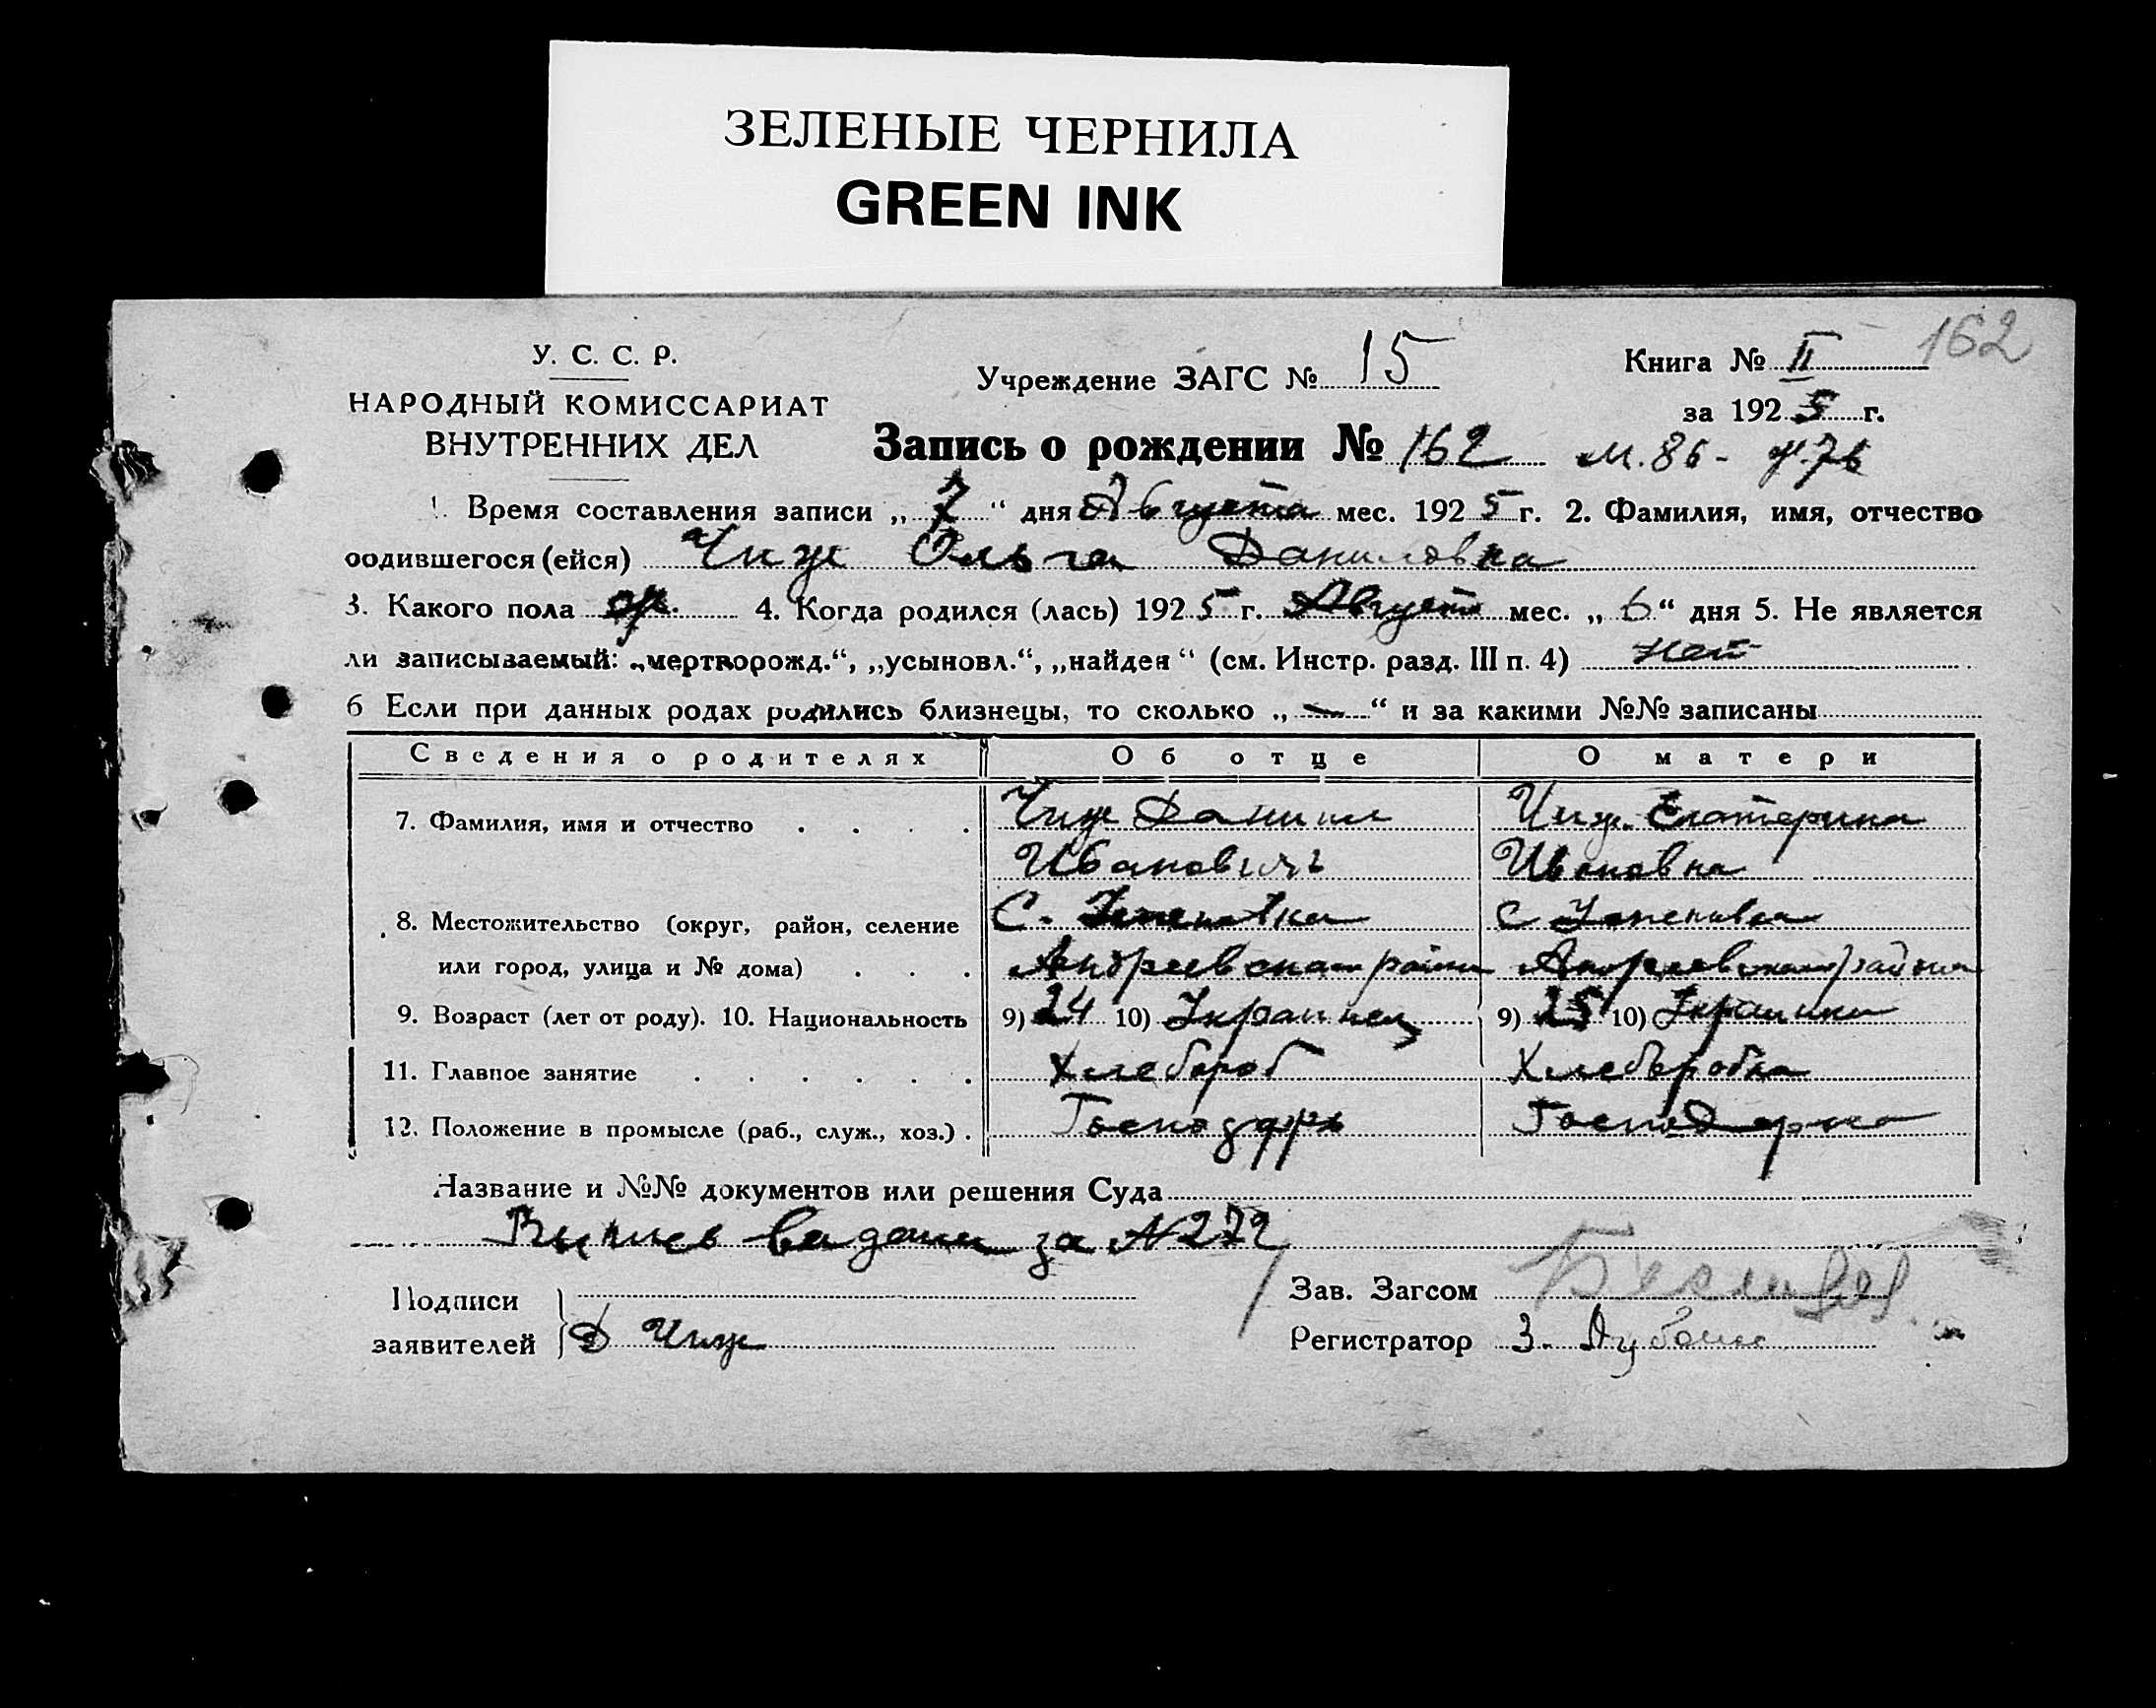 ЗЕЛЕНЫЕ ЧЕРНИЛА
GREEN INK
162
У. С. С. Р.
НАРОДНЫЙ КОМИССАРИАТ
ВНУТРЕННИХ ДЕЛ
Учреждение ЗАГС № 15
Книга № II
за 1925 г.
Запись о рождении № 162 м. 86 - ж. 76
1. Время составления записи „ 7 “ дня Августа мес. 1925 г. 2. Фамилия, имя, отчество
родившегося (ейся) Чиж Ольга Даниловна
3. Какого пола ж. 4. Когда родился (лась) 1925 г. Август мес. „ 6 “ дня 5. Не является
ли записываемый: „мертворожд.“, „усыновл.“, „найден“ (см. Инстр. разд. III п. 4) Нет
6 Если при данных родах родились близнецы, то сколько „ — “ и за какими №№ записаны
Сведения о родителях Об отце О матери
7. Фамилия, имя и отчество Чиж Даниил Чиж Екатерина
Иванович Ивановна
8. Местожительство (округ, район, селение С. Успеновка С Успеновка
или город, улица и № дома) Андреевского района Андреевского района
9. Возраст (лет от роду). 10. Национальность 9) 24 10) Украинец 9) 25 10) Украинка
11. Главное занятие Хлебороб Хлеборобка
12. Положение в промысле (раб., служ., хоз.) Господарь Господарка
Название и №№ документов или решения Суда
Выпись видана за N 272
Подписи
заявителей Д Чиж
Зав. Загсом
Регистратор З.